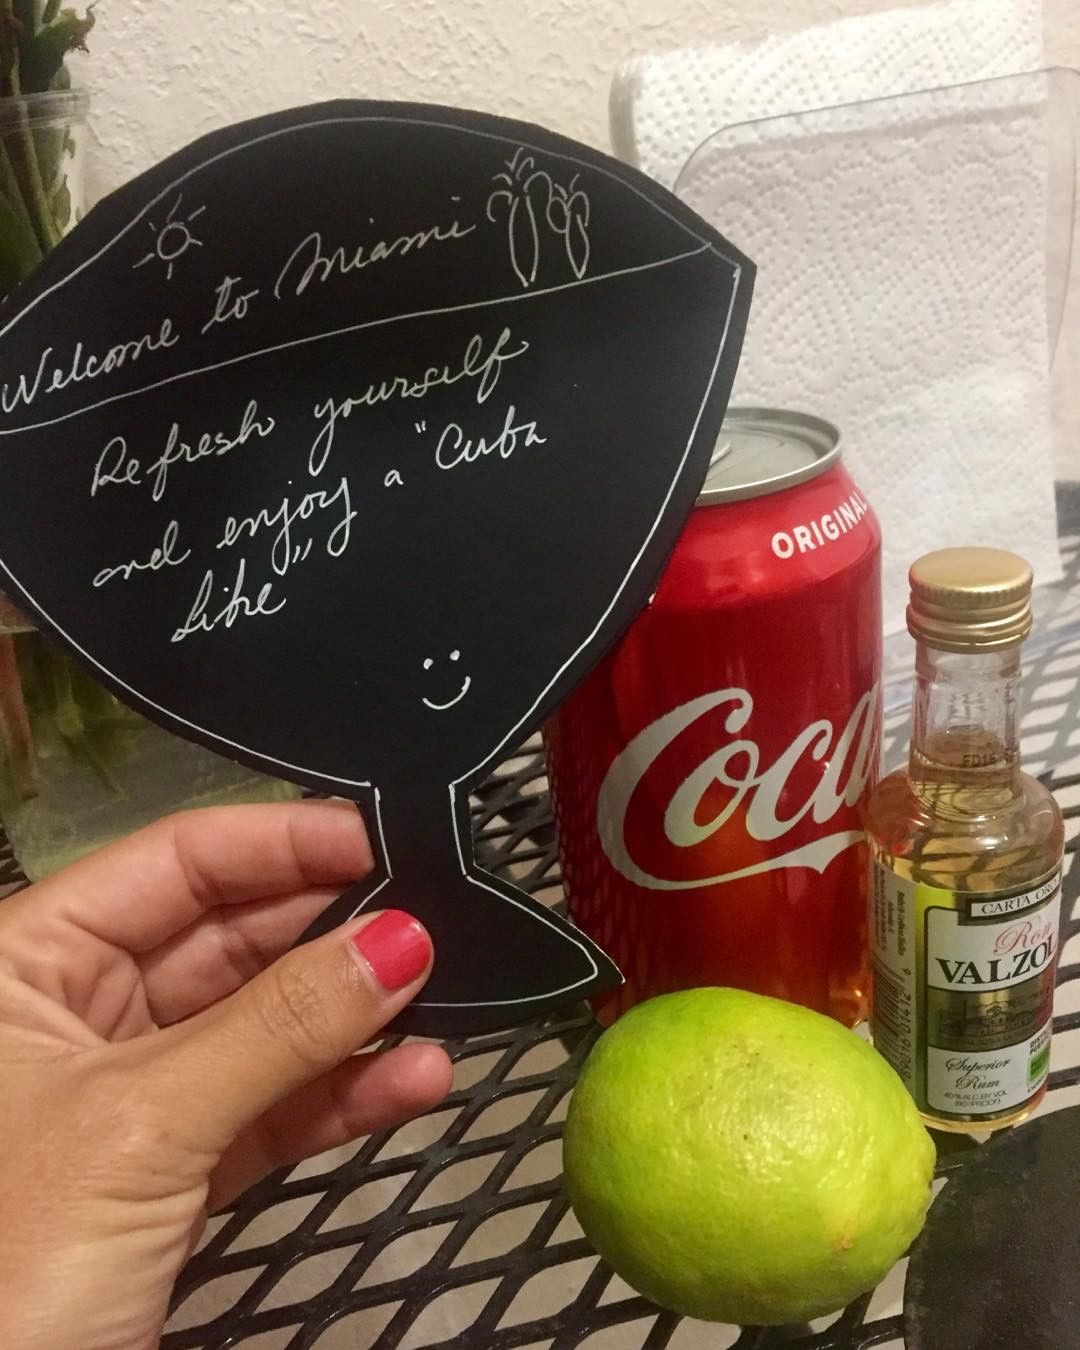 Welcome to Miami
Refresh yourself
and enjoy a "Cuba
Libre"
ORIGINAL
Coca
FD16
CARTA ORO
Ron
VALZO
Superior
Rum
40% ALC. BY VOL
(80 PROOF)